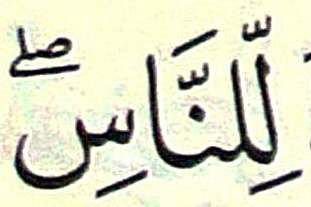 لِّلنَّاسِۖ